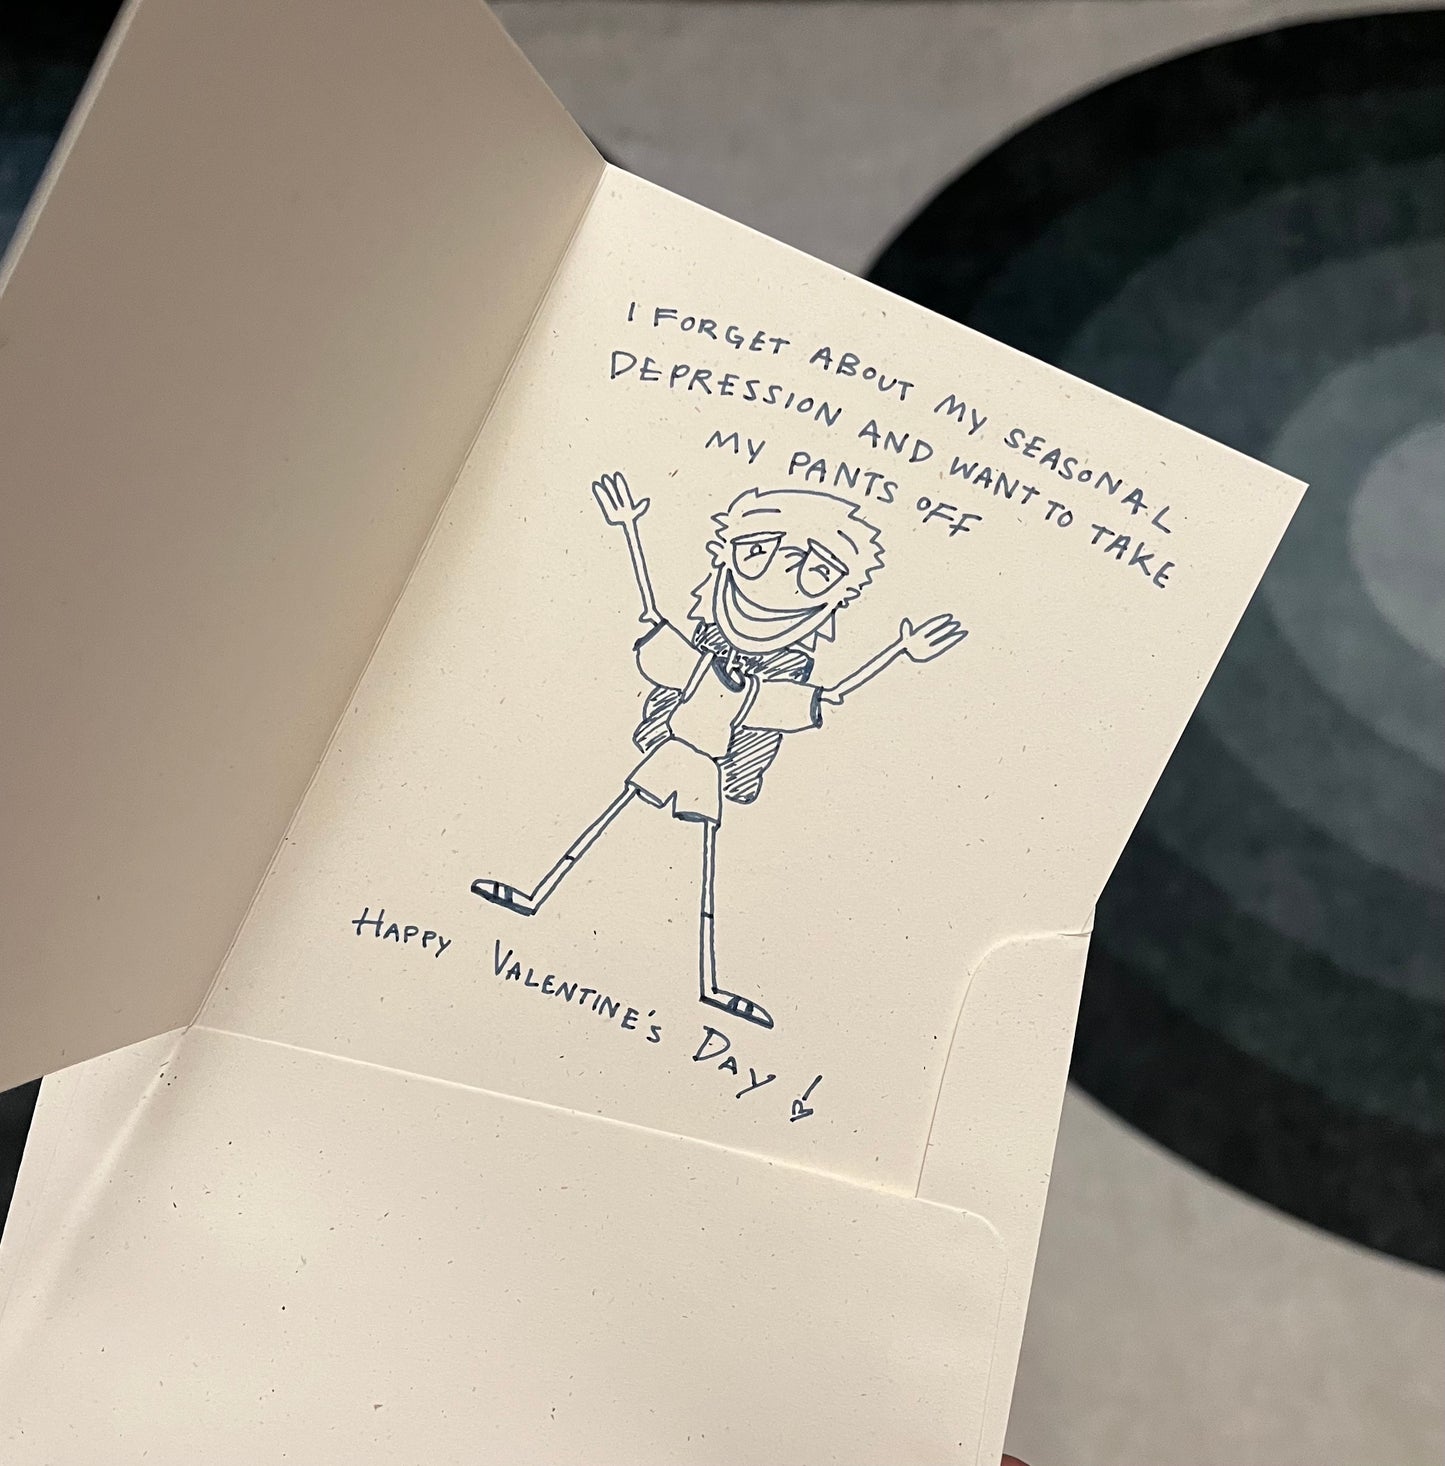 I FORGET ABOUT MY SEASONAL
DEPRESSION AND WANT TO TAKE
MY PANTS OFF
HAPPY VALENTINE'S DAY!